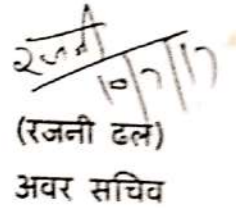 रजनी
10/7/17
(रजनी ढल)
अवर सचिव